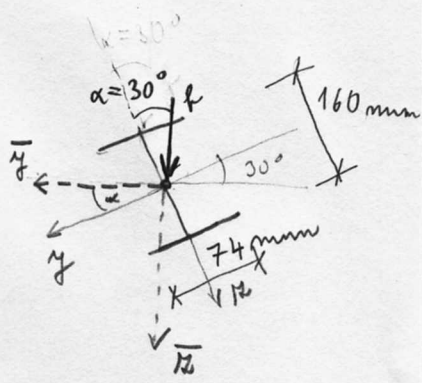 α=30°
α=30°
160 mm
30°
ȳ
α
y
74 mm
z
z̄